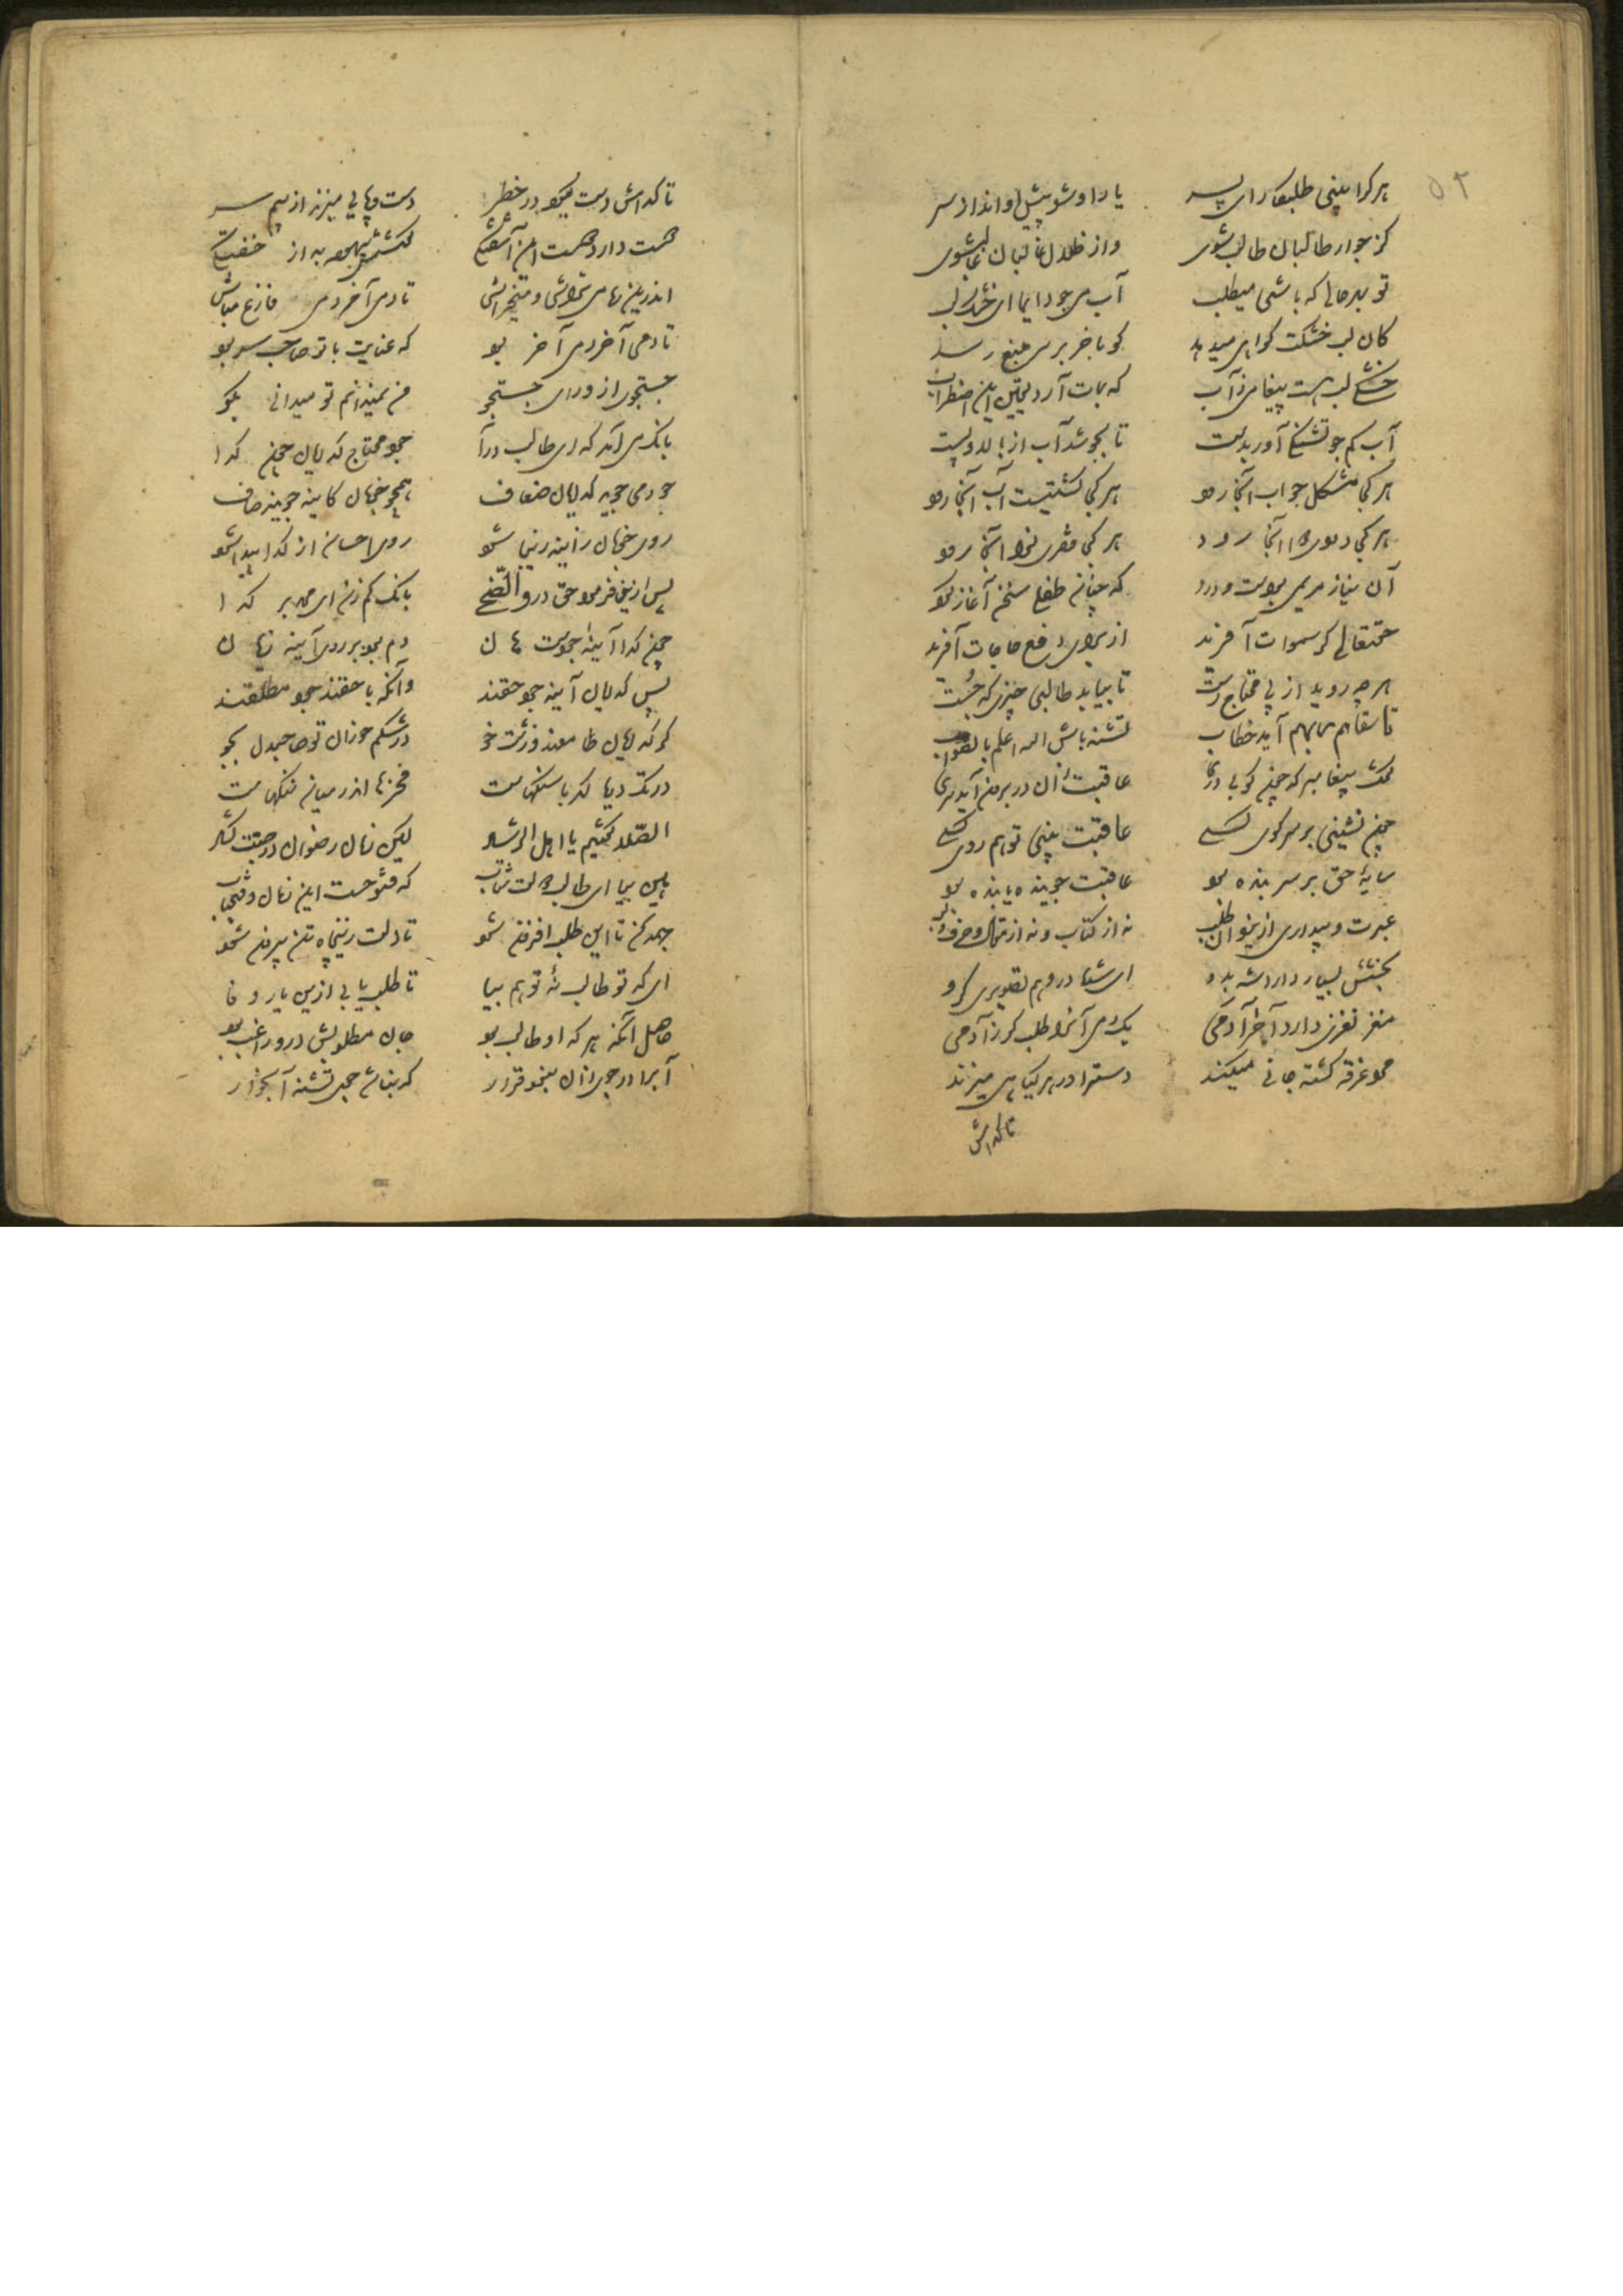 ۵۲
هر کرا بینی طلبکار ای پسر یار او شو پیش او انداز سر
کز جوار طالبان طالب شوی واز ظلال غالبان غالب شوی
تو بهر حالی که باشی میطلب آب می جو دایما ای خشک لب
کان لب خشکت گواهی میدهد کو بآخر بر سر منبع رسد
خشکی لب هست پیغامی ز آب که بمات آرد یقین این اضطراب
آب کم جو تشنگی آور بدست تا بجوشد آب از بالا و پست
هر کجا مشکل جواب آنجا رود هر کجا کشتیست آب آنجا رود
هر کجا دردی دوا آنجا رود هر کجا فقری نوا آنجا رود
آن نیاز مریمی بودست و درد که چنان طفلی سخن آغاز کرد
حقتعالی کر سموات آفرید از برای رفع حاجات آفرید
هر چه روید از پی محتاج رست تا بیابد طالبی چیزی که جست
تا سقاهم ربهم آید خطاب تشنه باش الله اعلم بالصواب
گفت پیغامبر که چون کوبی دری عاقبت زان در برون آید سری
چون نشینی بر سر کوی کسی عاقبت بینی تو هم روی کسی
سایهٔ حق بر سر بنده بود عاقبت جوینده یابنده بود
عبرت و بیداری از یزدان طلب نه از کتاب و نه از مقال و حرف و لب
بخشش بسیار دارد شه بدو ای شده در وهم تصویری گرو
مغز نغزی دارد آخر آدمی یکدمی آنرا طلب گر ز آدمی
مرد غرقه گشته جانی میکند دست را در هر گیاهی میزند
تا کدامش
تا کدامش دست گیرد در خطر دست و پایی میزند از بیم سر
دوست دارد دوست این آشفتگی کوشش بیهوده به از خفتگی
اندرین ره می تراش و میخراش تا دم آخر دمی فارغ مباش
تا دمی آخر دمی آخر بود که عنایت با تو صاحب سر بود
جستجوی از ورای جستجو من نمیدانم تو میدانی بگو
بانگ می آمد که ای طالب درآ جود محتاج گدایان چون گدا
جود می جوید گدایان ضعاف همچو خوبان کاینه جویند صاف
روی خوبان ز آینه زیبا شود روی احسان از گدا پیدا شود
پس ازین فرمود حق در والضحی بانگ کم زن ای محمد بر گدا
چون گدا آیینهٔ جودست هان دم بود بر روی آیینه زیان
پس گدایان آینه جود حقند وانکه با حقند جود مطلقند
گر گدایان طامعند و زشت خو در شکم خواران تو صاحبدل بجو
در تگ دریا گهر با سنگهاست فخرها اندر میان ننگهاست
الصلا گفتیم یا اهل الرشاد لیکن زمان رضوان در جنت گشاد
هین بیا ای طالب دولت شتاب که فتوحست این زمان و فتح باب
جهد کن تا این طلب افزون شود تا دلت زین چاه تن بیرون شود
ای که تو طالب نهٔ تو هم بیا تا طلب یابی ازین یار وفا
حاصل آنکه هر که او طالب بود جان مطلوبش درو راغب بود
آبرا در جوی زان نبود قرار که بنالد جوی تشنه آبخوار